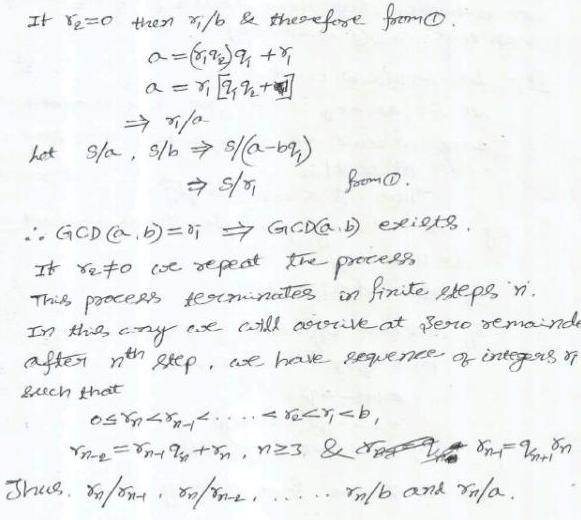 If r₂=0 then r₁/b & therefore from ①.
a = (r₁q₂)q₁ + r₁
a = r₁ [q₁q₂+1]
⇒ r₁/a
Let S/a, S/b ⇒ S/(a-bq₁)
⇒ S/r₁ from ①.
∴ GCD(a,b)=r₁ ⇒ GCD(a,b) exists.
If r₂≠0 we repeat the process
This process terminates in finite steps 'n'.
In this way we will arrive at zero remainde
after nth step, we have sequence of integers rᵢ
such that
0≤rₙ<rₙ₋₁<....<r₂<r₁<b,
rₙ₋₂=rₙ₋₁qₙ+rₙ, n≥3 & rₙ₋₁=qₙ₊₁rₙ
Thus. rₙ/rₙ₋₁, rₙ/rₙ₋₂, ..... rₙ/b and rₙ/a.